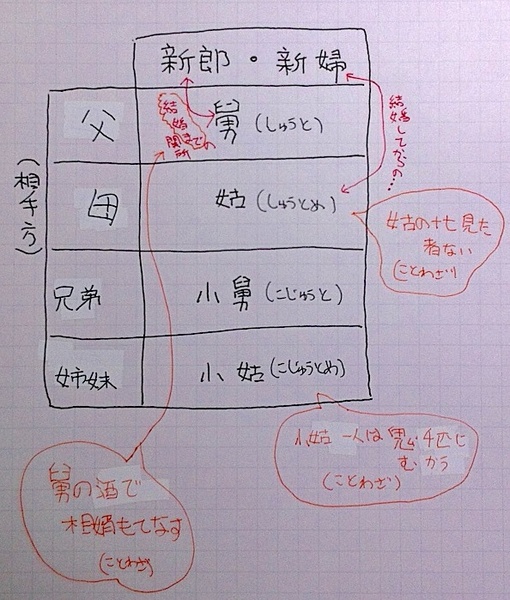 新郎・新婦
(相手方)
父
舅(しゅうと)
結婚までの関所
結婚してからの…
母
姑(しゅうとめ)
姑の十七見た
者ない
(ことわざ)
兄弟
小舅(こじゅうと)
姉妹
小姑(こじゅうとめ)
小姑一人は鬼千匹に
むかう
(ことわざ)
舅の酒で
相婿もてなす
(ことわざ)